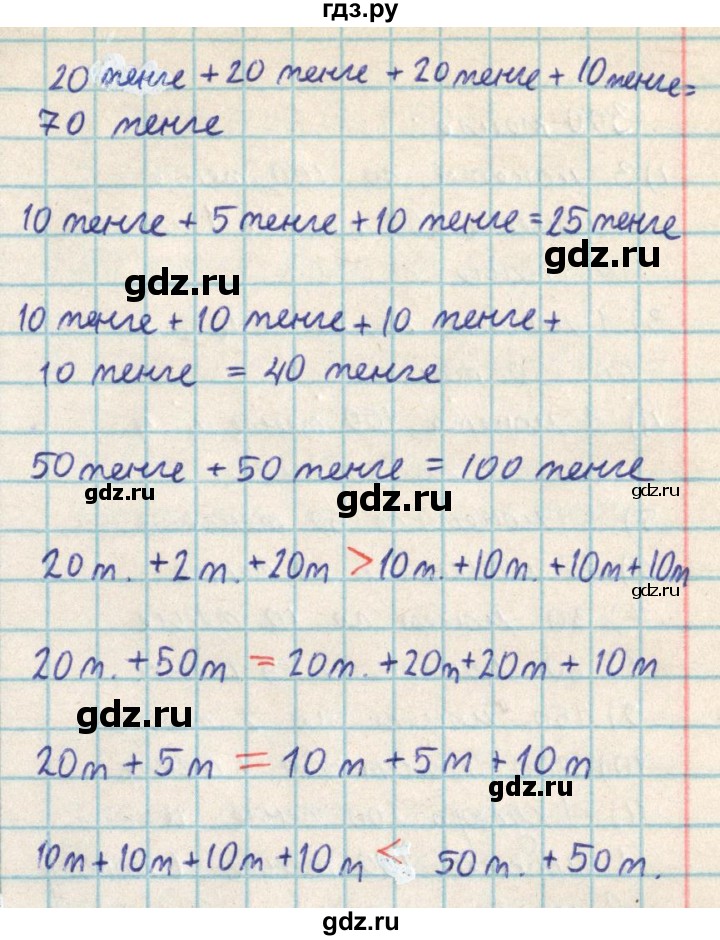 гдз.ру
20 тенге + 20 тенге + 20 тенге + 10 тенге =
70 тенге
10 тенге + 5 тенге + 10 тенге = 25 тенге
gdz.ru
gdz.ru
10 тенге + 10 тенге + 10 тенге +
10 тенге = 40 тенге
50 тенге + 50 тенге = 100 тенге
gdz.ru
gdz.ru
gdz.ru
20 т. + 2 т. + 20 т > 10 т. + 10 т. + 10 т + 10 т
gdz.ru
20 т. + 50 т = 20 т. + 20 т + 20 т + 10 т
gdz.ru
20 т + 5 т = 10 т + 5 т + 10 т
gdz.ru
10 т + 10 т + 10 т + 10 т < 50 т. + 50 т.
gdz.ru